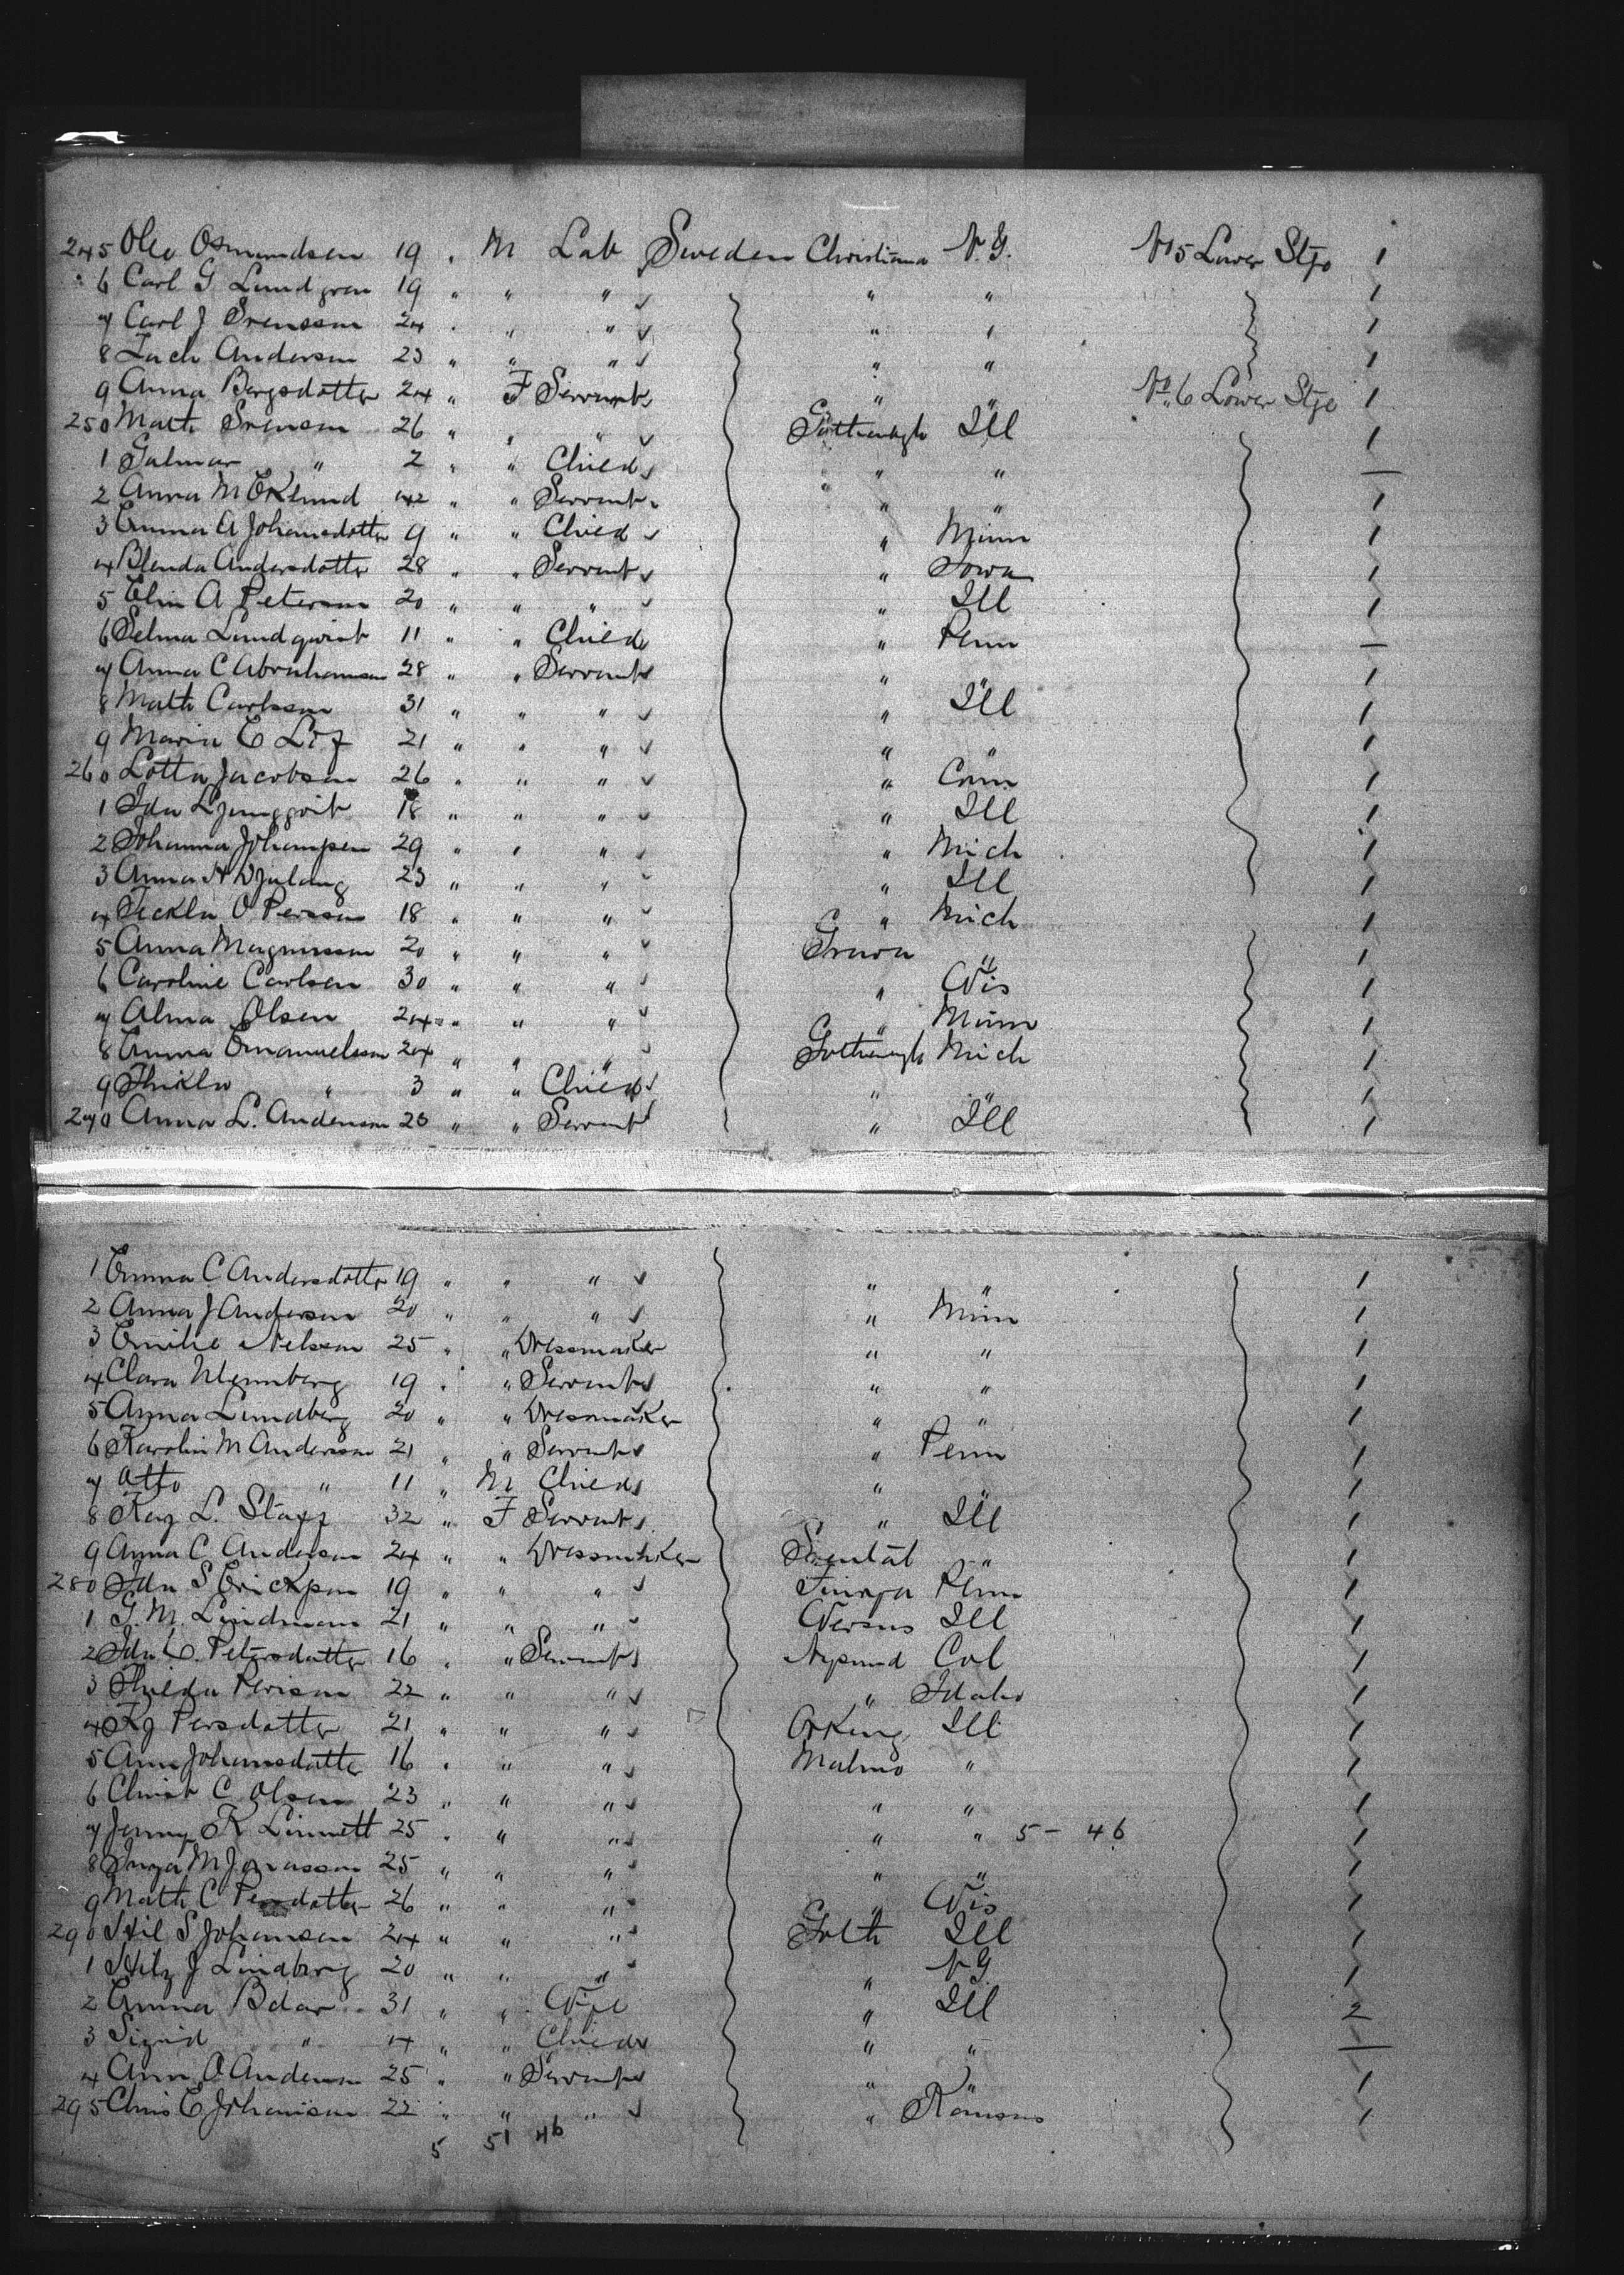 245 Olee Osmundsen 19 " M Lab Sweden Christiana N.Y. No 5 Lower Stge 1
6 Carl G Lundgren 19 " " " " " 1
7 Carl J Svensson 24 " " " " " 1
8 Zach Anderson 23 " " " " " 1
9 Anna Bergsdotter 24 " F Servant " " No 6 Lower Stge 1
250 Math Svensen 26 " " " Gothenbgh Ill 1
1 Galmar " 2 " " Child " " —
2 Anna M Eklund 42 " " Servant " " 1
3 Emma A Johansdotter 9 " " Child " Minn 1
4 Blenda Andersdotter 28 " " Servant " Iowa 1
5 Elin A Peterson 20 " " " " Ill 1
6 Selma Lundqwist 11 " " Child " Penn —
7 Anna C Abrahamson 28 " " Servant " " 1
8 Math Carlsson 31 " " " " Ill 1
9 Maria C Löf 21 " " " " " 1
260 Lotta Jacobson 26 " " " " Conn 1
1 Ida Ljungqvit 18 " " " " Ill 1
2 Johanna Johansen 29 " " " " Mich 1
3 Anna H 23 " " " " Ill 1
4 Teckla O Persson 18 " " " " Mich 1
5 Anna Magnusson 20 " " " Grava " 1
6 Caroline Carlsen 30 " " " " Wis 1
7 Alma Olsen 24 " " " " Minn 1
8 Emma Emanuelsson 24 " " " Gothenbgh Mich 1
9 Thikla " 3 " " Child " " 1
270 Anna L. Anderson 20 " " Servant " Ill 1
1 Emma C Andersdotter 19 " " " " " 1
2 Anna J Anderson 20 " " " " Minn 1
3 Emilie Nelsson 25 " " Dressmaker " " 1
4 Clara Wennberg 19 " " Servant " " 1
5 Anna Lundberg 20 " " Dressmaker " " 1
6 Karolin M Anderson 21 " " Servant " Penn 1
7 Otto " 11 " M Child " " 1
8 Kay L. 32 " F Servant " Ill 1
9 Anna C Anderson 24 " " Dressmaker " 1
280 Ida S Erickson 19 " " " Penn 1
1 G. M. Lindman 21 " " " Wersus Ill 1
2 Ida C. Petersdotter 16 " " Servant Nysund Col 1
3 Thilda Person 22 " " " " Idaho 1
4 Kj Persdotter 21 " " " Orking Ill 1
5 Ann Johansdotter 16 " " " Malmo " 1
6 Christ C Olson 23 " " " " " 1
7 Jenny K Linnett 25 " " " " " 5 - 46 1
8 Inga M Jonasson 25 " " " " " 1
9 Math C Persdotter 26 " " " " Wis 1
290 Hil S Johanson 24 " " " Goth Ill 1
1 Hilz J Lindberg 20 " " " " N Y 1
2 Emma Bdar 31 " " Wife " Ill 2
3 Sigrid " 4 " " Child " " —
4 Ann O Anderson 25 " " Servant " " 1
295 Chris E Johanson 22 " " " " Kansas 1
5 51 46